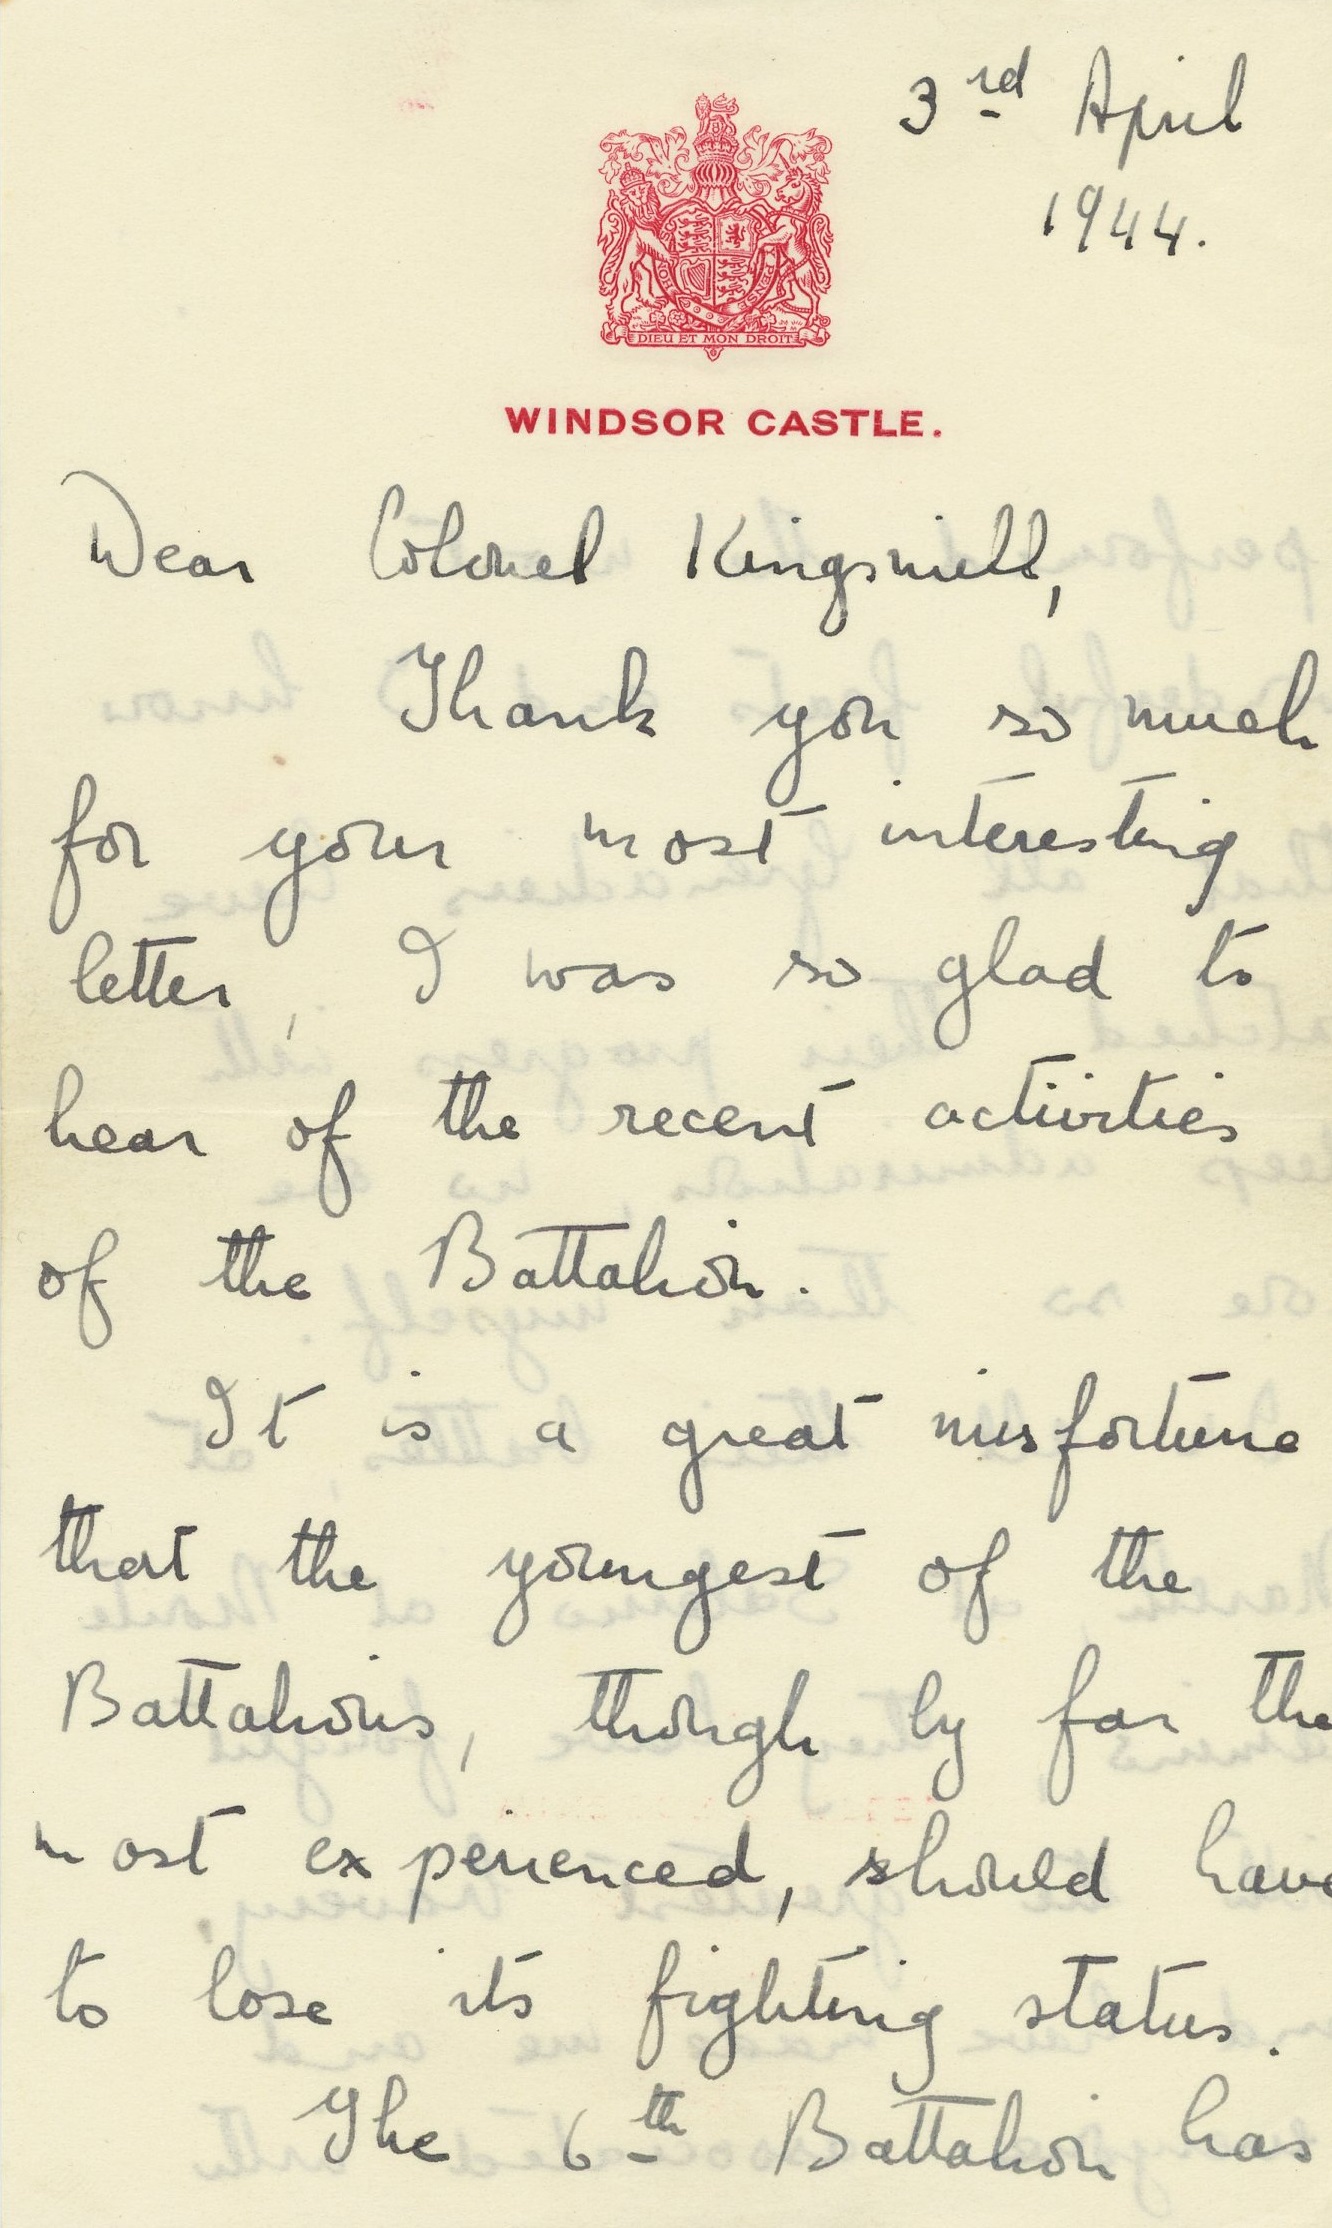 3rd April
1944.
DIEU ET MON DROIT
WINDSOR CASTLE.
Dear Colonel Kingsmill,
Thank you so much
for your most interesting
letter, I was so glad to
hear of the recent activities
of the Battalion.
It is a great misfortune
that the youngest of the
Battalions, though by far the
most experienced, should have
to lose its fighting status.
The 6th Battalion has